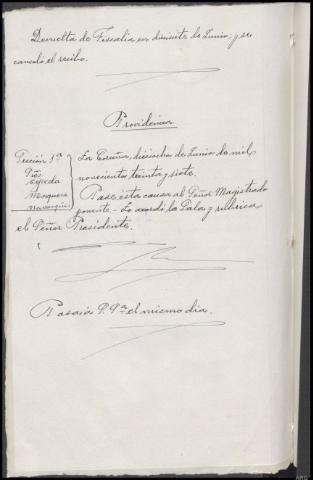 Devuelta de Fiscalía en diecisiete de Junio; y se
canceló el recibo.
Providencia
Sección 1ª
Cepeda
Mosquera
La Coruña, dieciocho de Junio de mil
novecientos treinta y siete.
Pase esta causa al Señor Magistrado
ponente.- Lo acordó la Sala y rubrica
el Señor Presidente.
el mismo día.